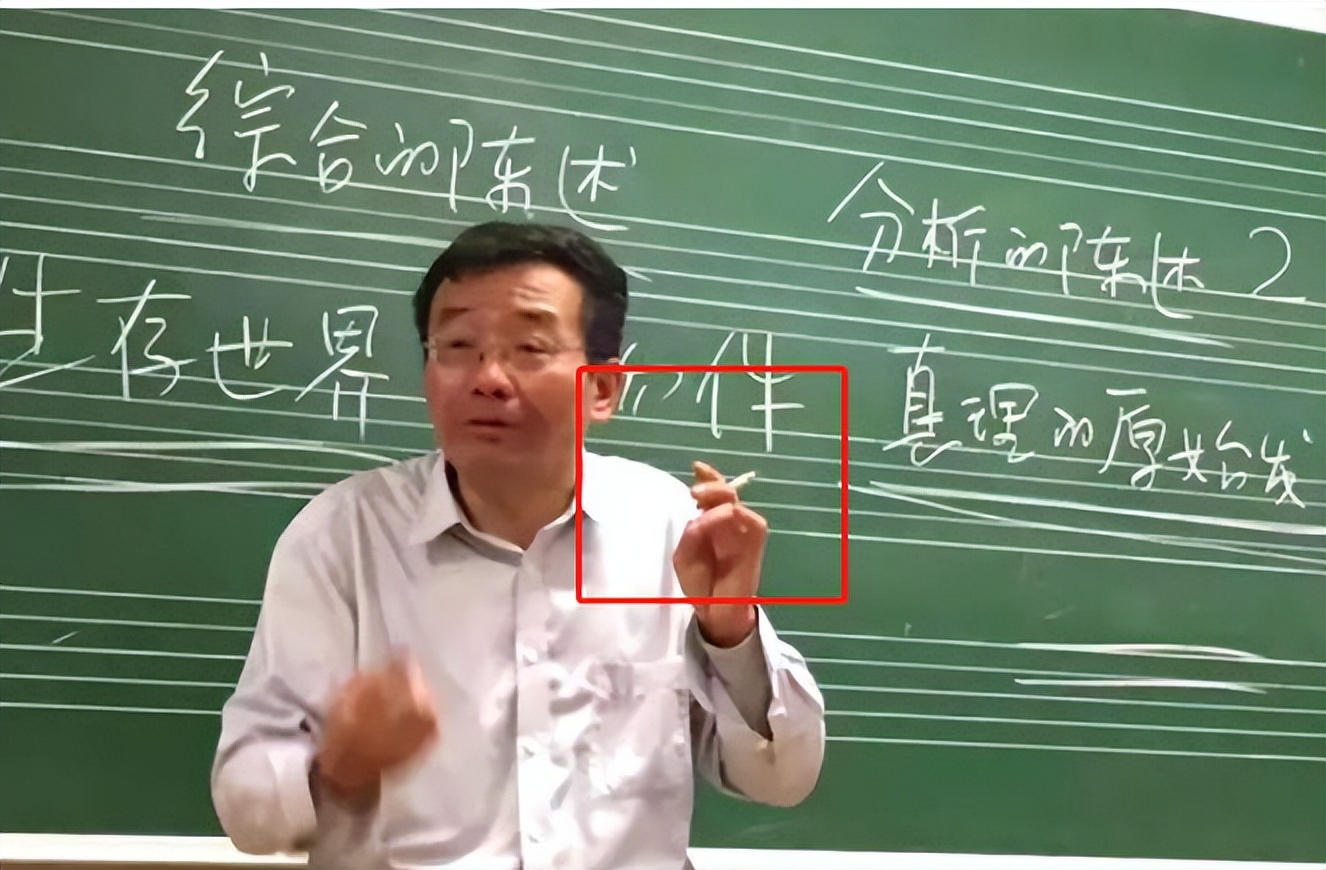 综合的陈述
生存世界 的件
分析的陈述 2
真理的原始发